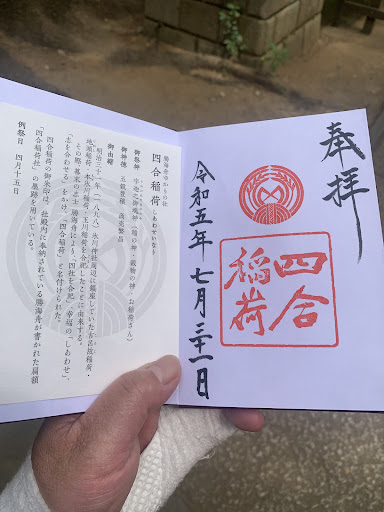 奉拝
四合
稲荷
令和五年七月三十一日
勝海舟ゆかりの社
四合稲荷 しあわせいなり
御祭神 宇迦之御魂神(稲の神・穀物の神・お稲荷さん)
御神徳 五穀豊穣 商売繁昌
御由緒
明治三十一年(一八九八)氷川神社周辺に鎮座していた古呂故稲荷・
地頭稲荷・本氷川稲荷・玉川稲荷を合祀したことに由来する。
その際、幕末の志士 勝海舟により、四社を合祀、幸福の「しあわせ」、
「志を合わせる」をかけ、「四合稲荷」と名付けられた。
四合稲荷の御朱印は、社殿内に奉納されている勝海舟が書かれた扁額
「四合稲荷社」の墨跡を用いている。
例祭日 四月十五日